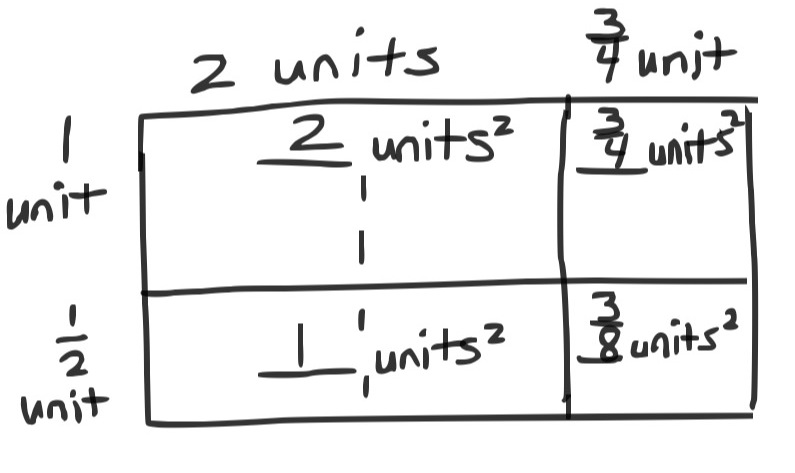 2 units 3/4 unit
1 unit
2 units² 3/4 units²
1/2 unit
1 units² 3/8 units²